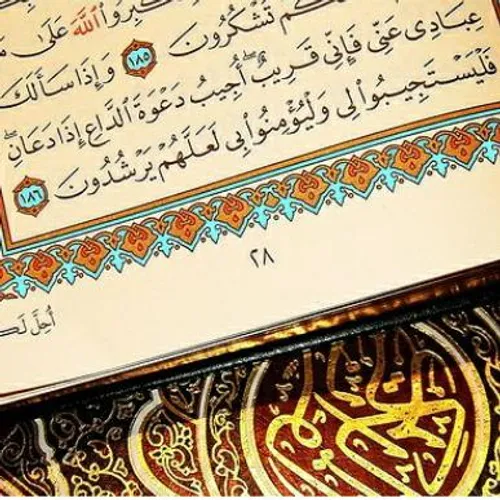 كَبِّرُوا۟ ٱللَّهَ عَلَىٰ
كُمْ تَشْكُرُونَ ١٨٥ وَإِذَا سَأَلَكَ
عِبَادِى عَنِّى فَإِنِّى قَرِيبٌ ۖ أُجِيبُ دَعْوَةَ ٱلدَّاعِ إِذَا دَعَانِ ۖ
فَلْيَسْتَجِيبُوا۟ لِى وَلْيُؤْمِنُوا۟ بِى لَعَلَّهُمْ يَرْشُدُونَ ١٨٦
٢٨
أُحِلَّ لَكُ